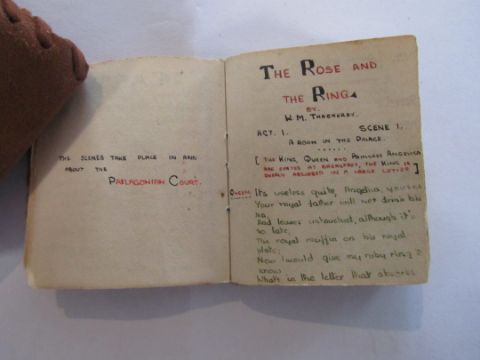 THE SCENES TAKE PLACE IN AND
ABOUT THE
PAFLAGONIAN COURT.
THE ROSE AND
THE RING
BY.
W. M. THACKERAY.
ACT. 1. SCENE 1.
A ROOM IN THE PALACE.
[THE KING, QUEEN AND PRINCESS ANGELICA
ARE SEATED AT BREAKFAST, THE KING IS
DEEPLY ABSORBED IN A LARGE LETTER]
QUEEN Its useless quite, Angelica,
Your royal father will not drink his
tea,
And leaves untouched, although it's
so late,
The royal muffin on his royal
plate;
Now I would give my ruby ring to
know
What's in the letter that absorbs